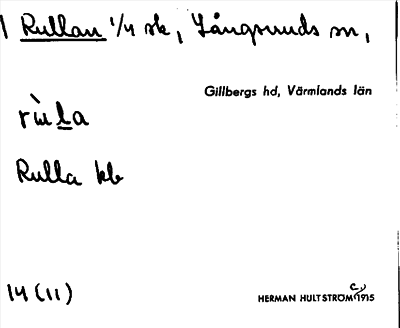 1 Rullan 1/4 sk, Långseruds sn,
Gillbergs hd, Värmlands län
rùla
Rulla kb
14 (11)
HERMAN HULTSTRÖM 1915